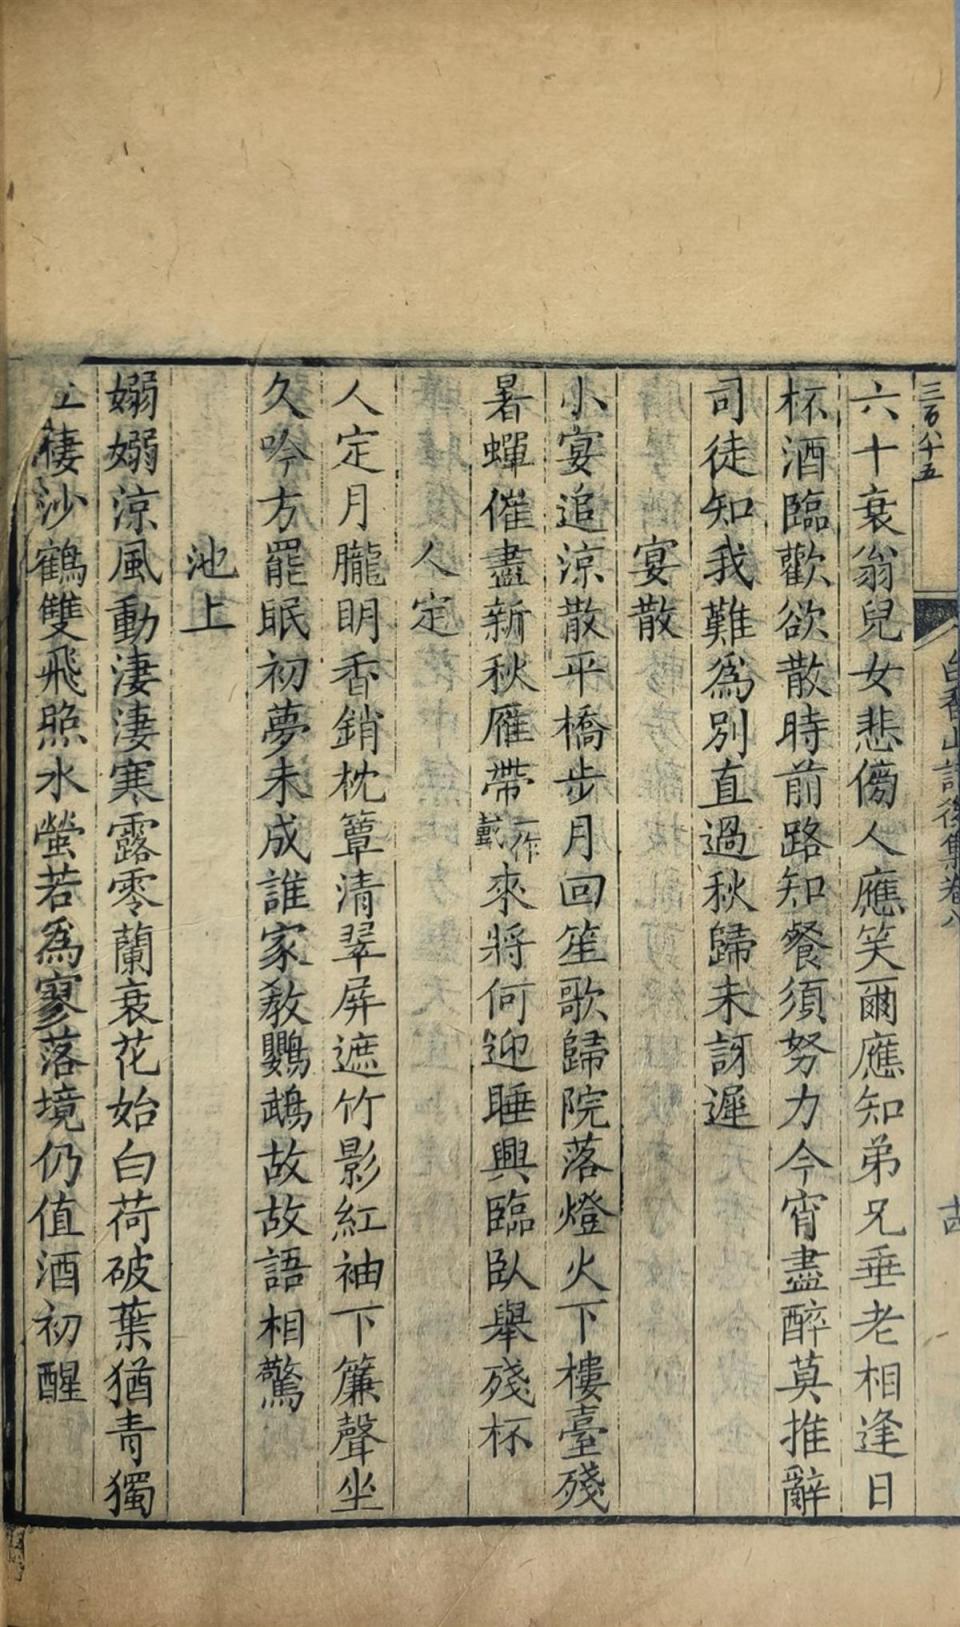 三百八十五
白香山詩後集卷八
六十衰翁兒女悲傍人應笑爾應知弟兄垂老相逢日
杯酒臨歡欲散時前路知餐須努力今宵盡醉莫推辭
司徒知我難為別直過秋歸未訝遲
宴散
小宴追涼散平橋步月回笙歌歸院落燈火下樓臺殘
暑蟬催盡新秋雁帶一作戴來將何迎睡興臨臥舉殘杯
人定
人定月朧明香銷枕簟清翠屏遮竹影紅袖下簾聲坐
久吟方罷眠初夢未成誰家教鸚鵡故故語相驚
池上
嫋嫋涼風動淒淒寒露零蘭衰花始白荷破葉猶青獨
立棲沙鶴雙飛照水螢若為寥落境仍值酒初醒